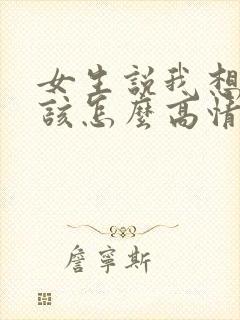 女生説我想
該怎麽高情
詹寧斯